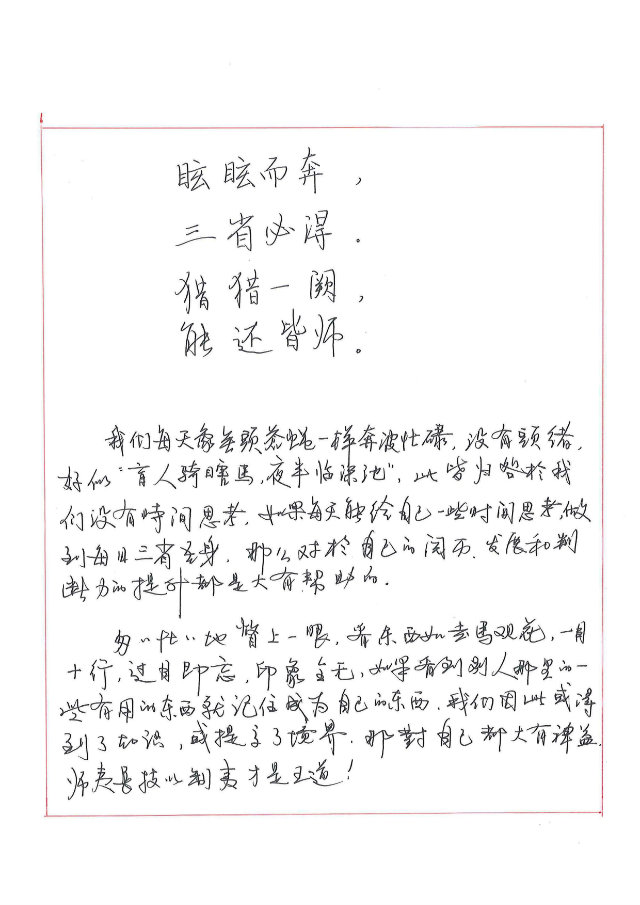 眩眩而奔，
三省必得．
猎猎一阙，
能还皆师。
我们每天象無頭苍蝇一样奔波忙碌，没有頭绪，
好似“盲人骑瞎馬，夜半临深池”，此皆归咎於我
们没有時间思考，如果每天能给自己一些时间思考，做
到每日三省吾身，那么对於自己的阅历、发展和判
断力的提升都是大有帮助的．
匆匆忙忙地瞥上一眼，看东西如走馬观花，一目
十行，过目即忘，印象全无，如果看到别人那里的一
些有用的东西就记住成为自己的东西，我们因此或得
到了知识，或提高了境界．那對自己都大有裨益．
师夷長技以制夷才是王道！